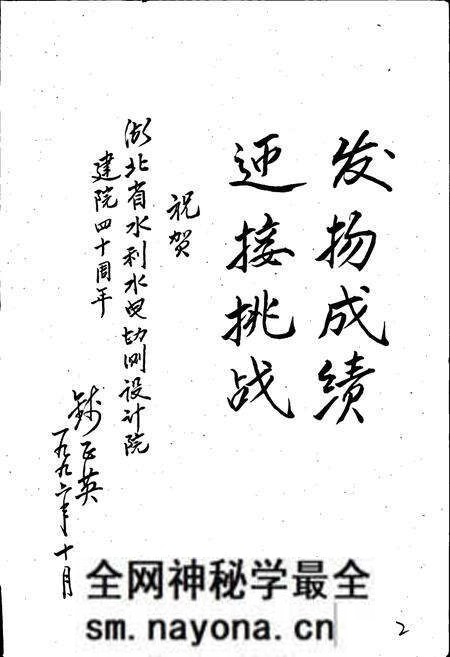 发扬成绩
迎接挑战
祝贺
湖北省水利水电勘测设计院
建院四十周年
钱正英
一九九六年十月
全网神秘学最全
sm.nayona.cn
2